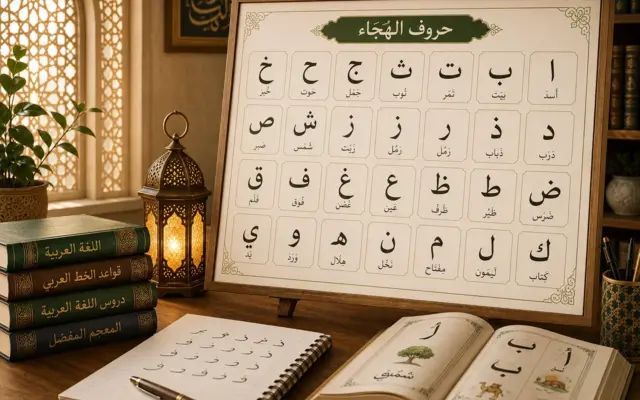 حروف الهُجَاء
ا ب ت ث ج ح خ
أسد بيت ثوب جمل حوت خبز
د ذ ر ز ز ش ص
درب ذباب رمل رمل زيت شمس صبر
ض ط ظ ع غ ف ق
ضرس طير ظرف عين غصن فوق قلم
ك ل م ن ه و ي
كتاب ليمون مفتاح نخل هلال ورد يد
اللغة العربية
قواعد الخط العربي
دروس اللغة العربية
المعجم المفضل
أ ب
ب
ر